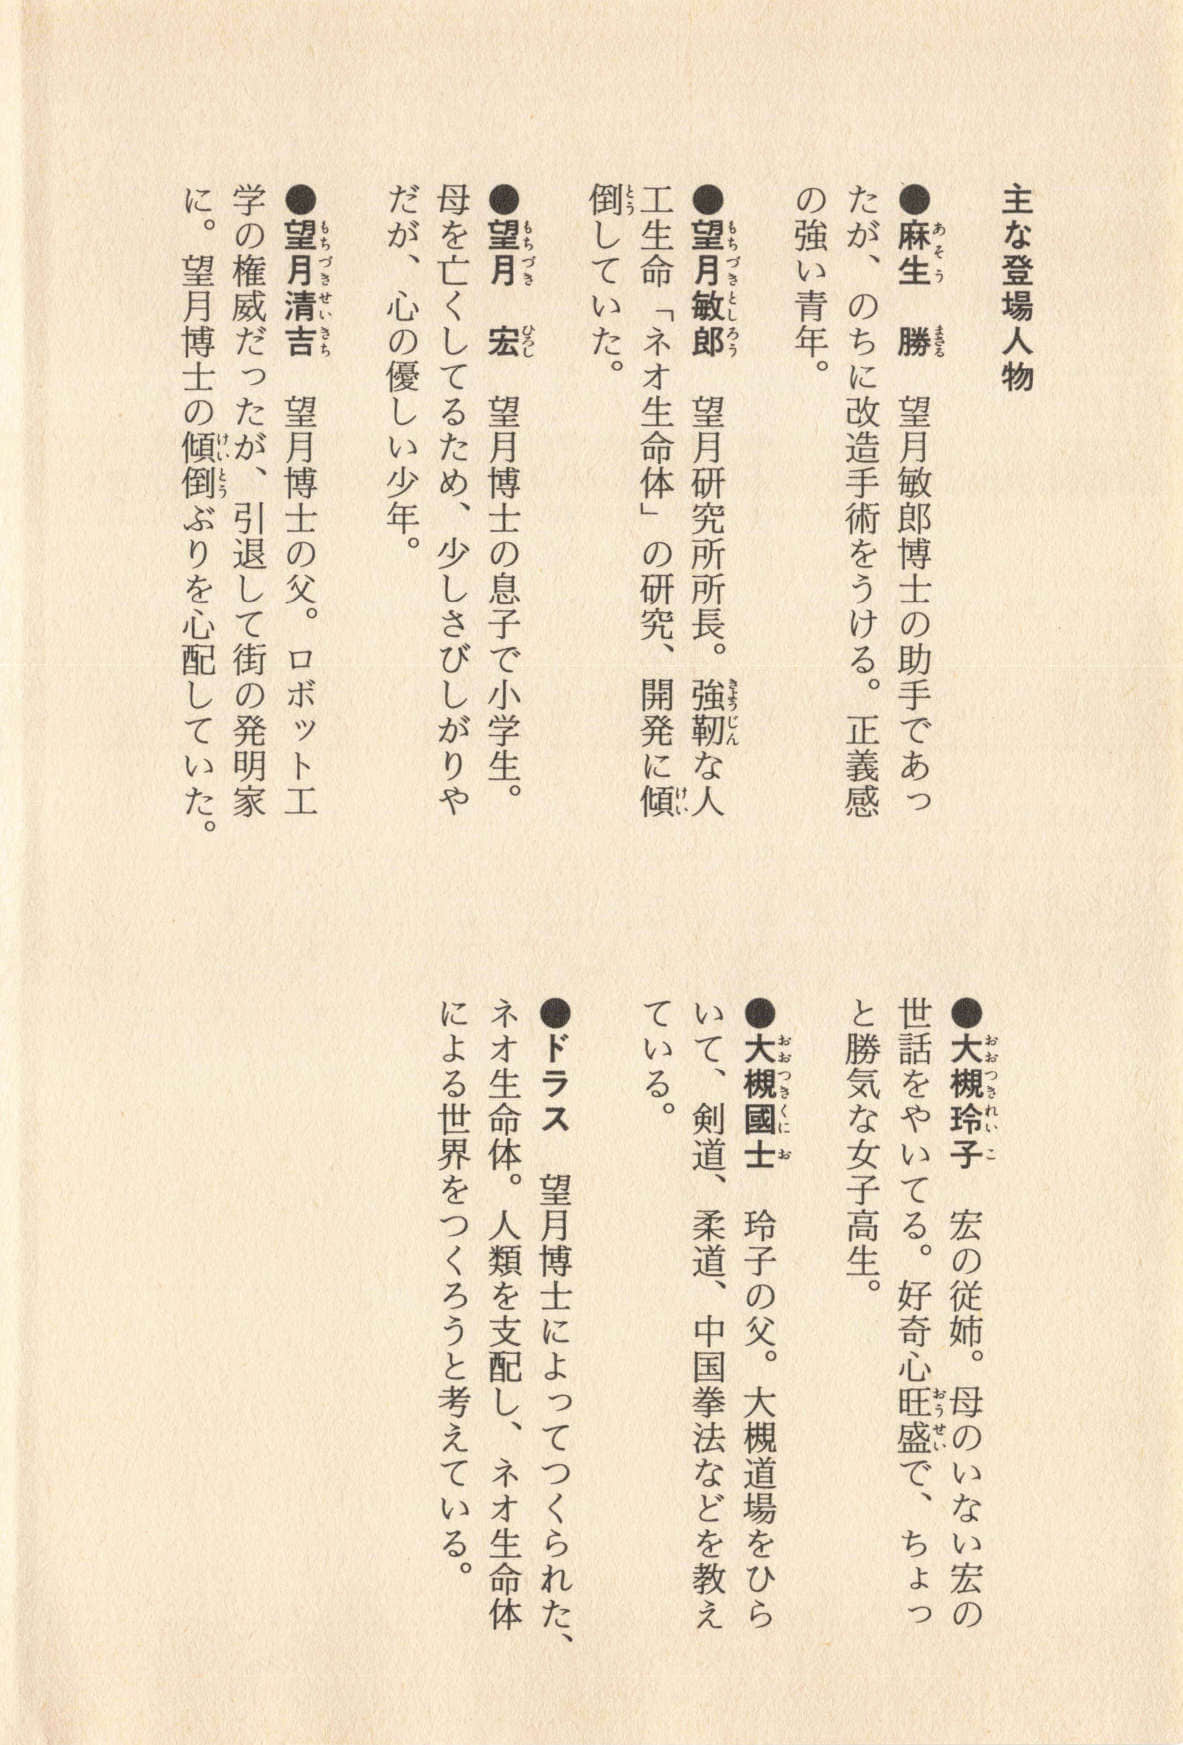 主な登場人物
●麻生　勝　望月敏郎博士の助手であっ
たが、のちに改造手術をうける。正義感
の強い青年。
●望月敏郎　望月研究所所長。強靭な人
工生命「ネオ生命体」の研究、開発に傾
倒していた。
●望月　宏　望月博士の息子で小学生。
母を亡くしてるため、少しさびしがりや
だが、心の優しい少年。
●望月清吉　望月博士の父。ロボット工
学の権威だったが、引退して街の発明家
に。望月博士の傾倒ぶりを心配していた。
●大槻玲子　宏の従姉。母のいない宏の
世話をやいてる。好奇心旺盛で、ちょっ
と勝気な女子高生。
●大槻國士　玲子の父。大槻道場をひら
いて、剣道、柔道、中国拳法などを教え
ている。
●ドラス　望月博士によってつくられた、
ネオ生命体。人類を支配し、ネオ生命体
による世界をつくろうと考えている。